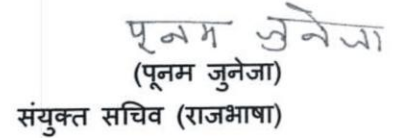 पूनम जुनेजा
(पूनम जुनेजा)
संयुक्त सचिव (राजभाषा)